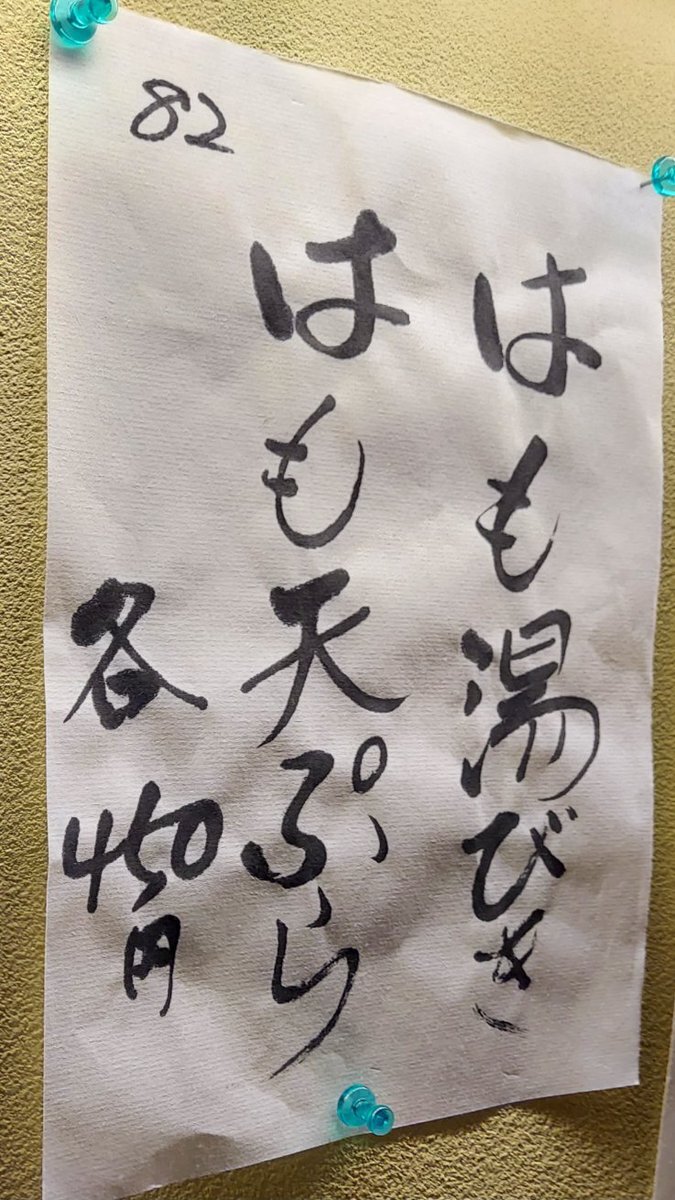 はも湯びき
はも天ぷら
各450円
82